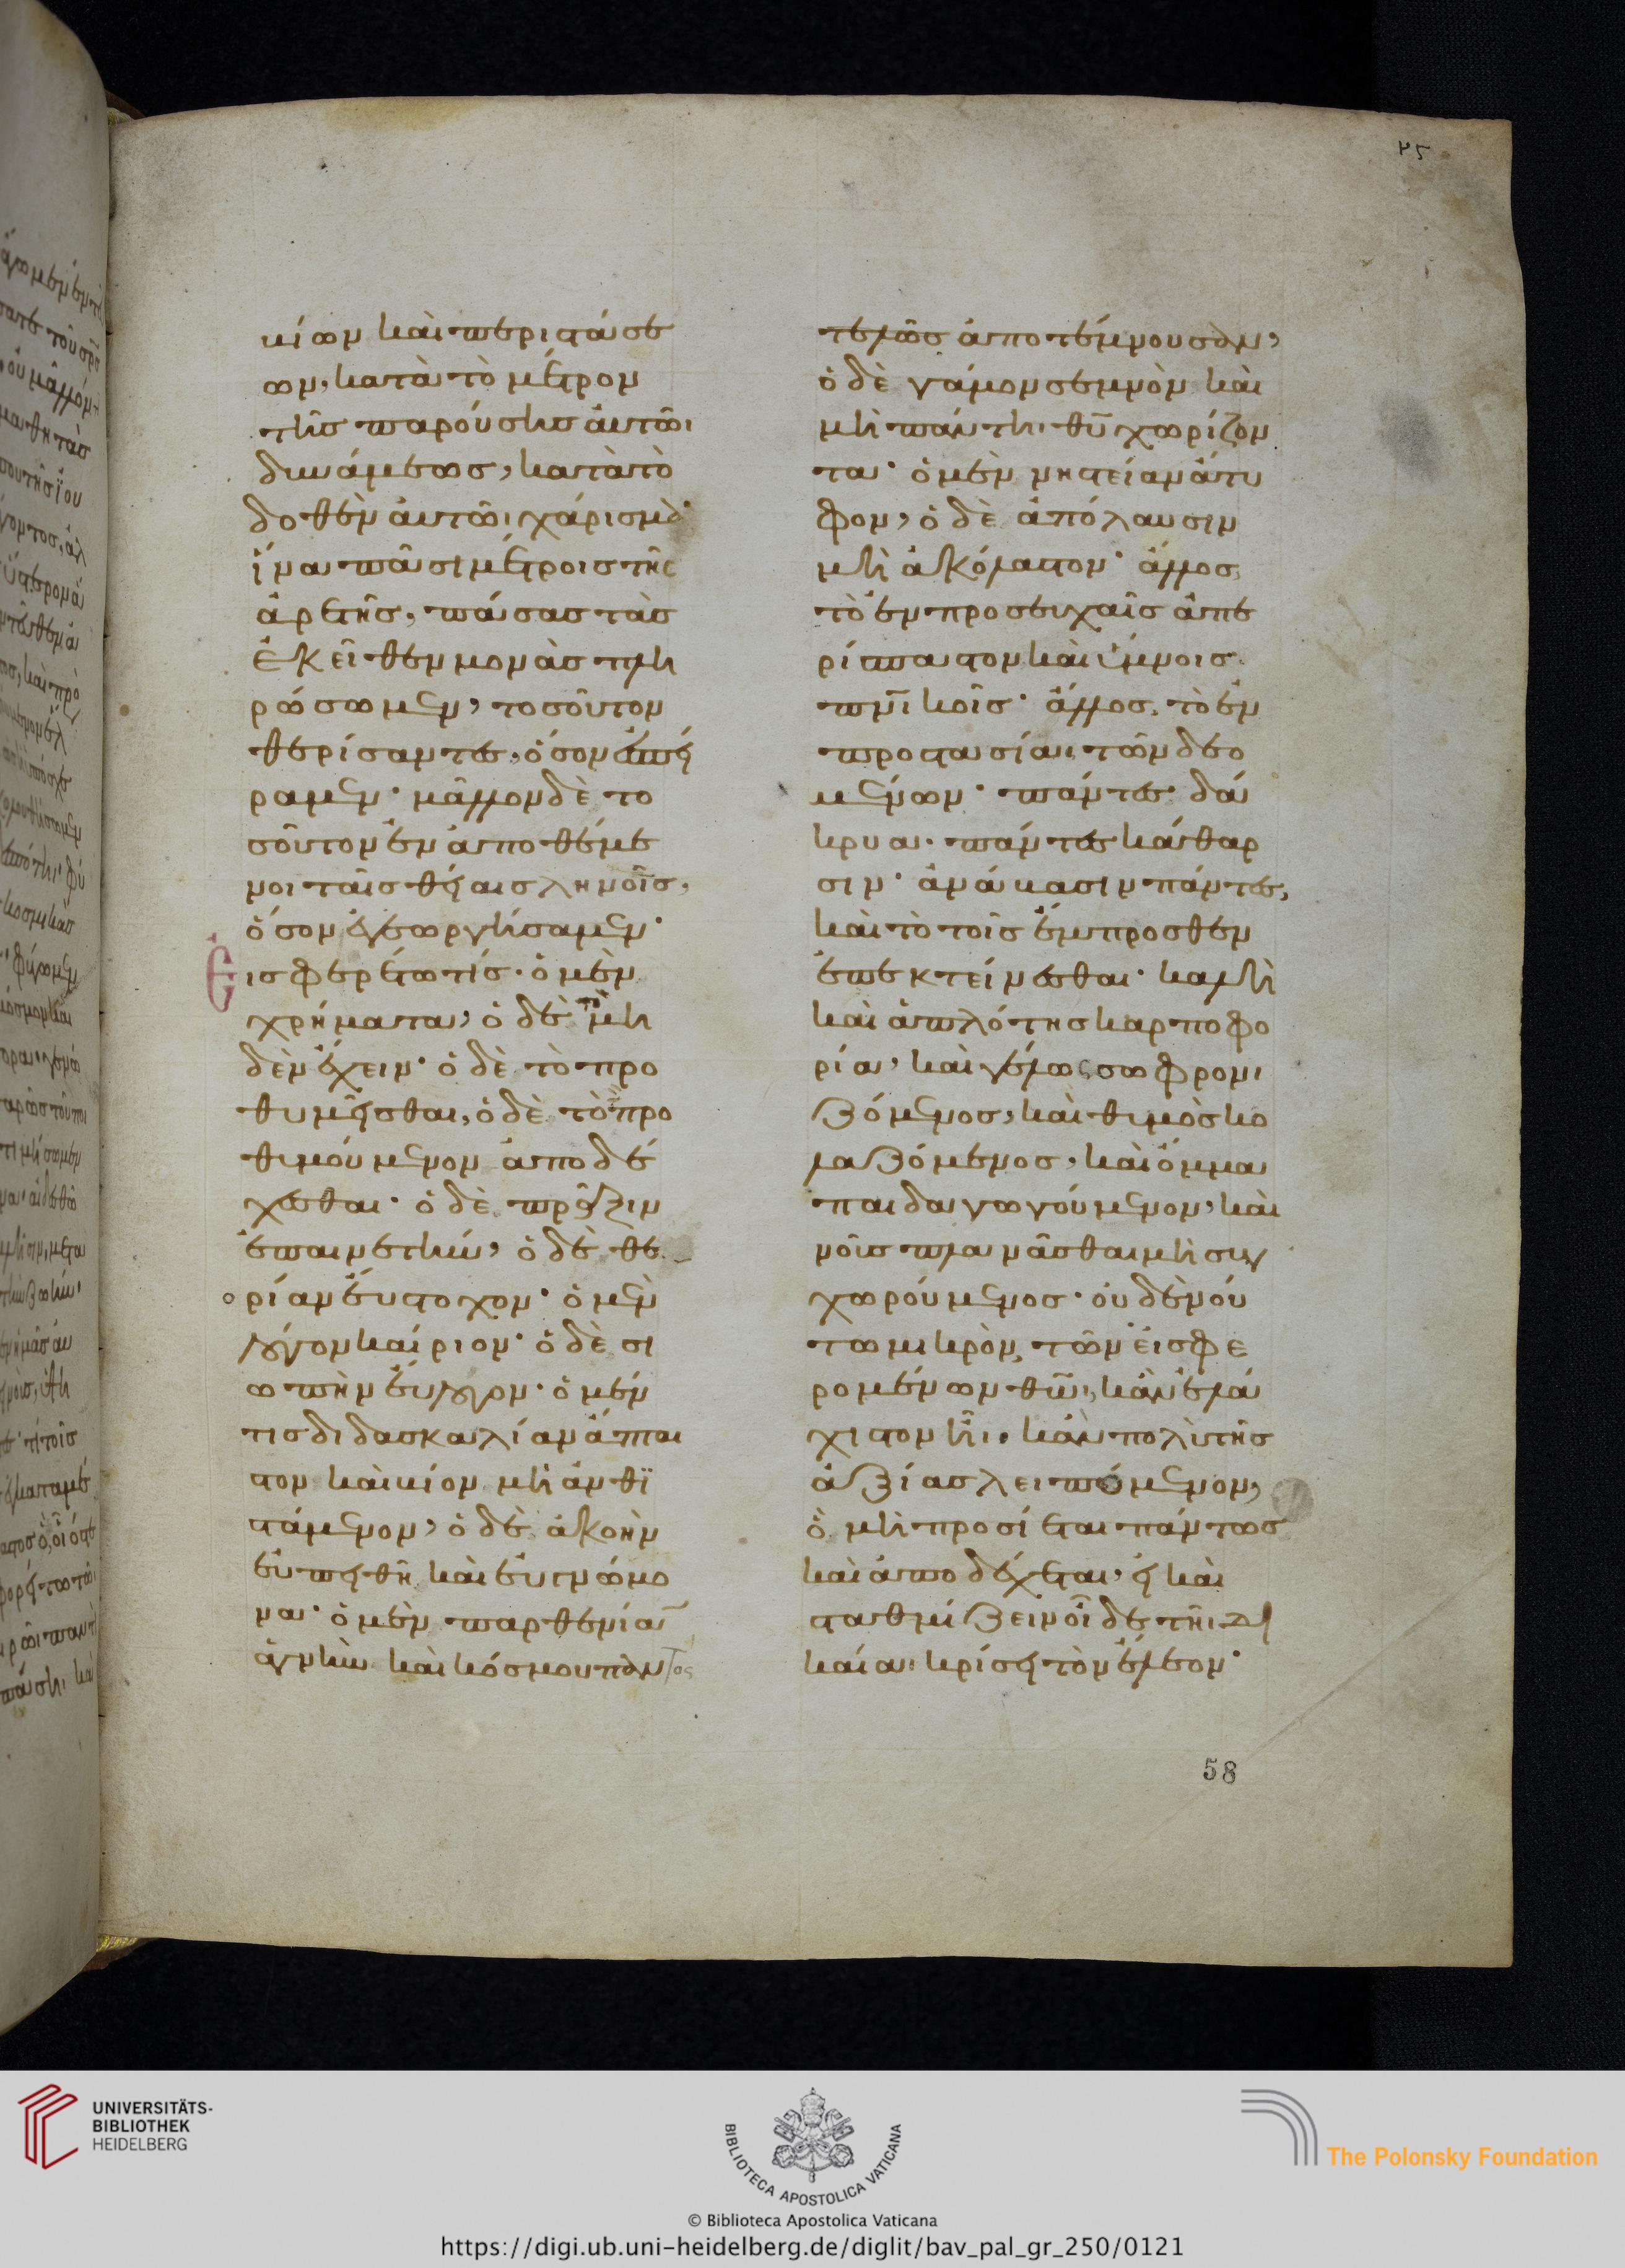 βίων καὶ περιστάσε
ων, κατὰ τὸ μέτρον
τῆς παρούσης αὐτῶι
δυνάμεως, κατὰ τὸ
δοθὲν αὐτῶι χάρισμα·
ἵνα πᾶσι μέτροις τῆς
ἀρετῆς, πάσας τὰς
ἐκεῖθεν μονὰς πλη
ρώσωμεν, τοσοῦτον
θερίσαντες, ὅσον ἐσπεί
ραμεν· μᾶλλον δὲ το
σοῦτον ἐναποθέμε
νοι ταῖς θείαις ληνοῖς,
ὅσον ἐγεωργήσαμεν·
Εἰσφερέτω τίς· ὁ μὲν
χρήματα, ὁ δὲ τὸ μη
δὲν ἔχειν· ὁ δὲ τὸ προ
θυμεῖσθαι, ὁ δὲ τὸ προ
θυμούμενον ἀποδέ
χεσθαι· ὁ δὲ πρᾶξιν
ἐπαινετὴν, ὁ δὲ θε
ορίαν εὔστοχον· ὁ μὲν
λόγον καίριον· ὁ δὲ σι
ωπὴν εὔλογον· ὁ μέν
τις διδασκαλίαν ἄπται
στον καὶ βίον μὴ ἀνθϊ
στάμενον, ὁ δὲ ἀκοὴν
εὐπειθῆ καὶ εὐγνώμο
να· ὁ μὲν παρθενίαν
ἁγνὴν καὶ κόσμου παντος
τελῶς ἀποτέμνουσαν,
ὁ δὲ γάμον σεμνὸν καὶ
μὴ πάντη θῦ χωρίζον
τα· ὁ μὲν νηστείαν ἄτυ
φον, ὁ δὲ ἀπόλαυσιν
μὴ ἀκόλαστον· ἄλλος
τὸ ἐν προσευχαῖς ἀπε
ρίσπαστον καὶ ὕμνοις
πνικοῖς· ἄλλος, τὸ ἐν
προστασίαι τῶν δεο
μένων· πάντες δά
κρυα· πάντες κάθαρ
σιν· ἀνάβασιν πάντες,
καὶ τὸ τοῖς ἔμπροσθεν
ἐπεκτείνεσθαι· καλὴ
καὶ ἁπλότης καρποφο
ρία, καὶ γέλως σωφρονι
ζόμενος, καὶ θυμὸς κο
λαζόμενος, καὶ ὄμμα
παιδαγωγούμενον, καὶ
νοῦς πλανᾶσθαι μὴ συγ
χωρούμενος· οὐδὲν οὕ
τω μικρὸν τῶν εἰσφε
ρομένων θῶι, κἂν ἐλά
χιστον ἦι, κἂν πολὺ τῆς
ἀξίας λειπόμενον,
ὃ μὴ προσίεται πάντως
καὶ ἀποδέχεται, εἰ καὶ
σταθμίζειν οἶδε τῆι δι
καίαι κρίσει τὸν ἔλεον·
58
UNIVERSITÄTS-
BIBLIOTHEK
HEIDELBERG
BIBLIOTECA APOSTOLICA VATICANA
The Polonsky Foundation
© Biblioteca Apostolica Vaticana
https://digi.ub.uni-heidelberg.de/diglit/bav_pal_gr_250/0121